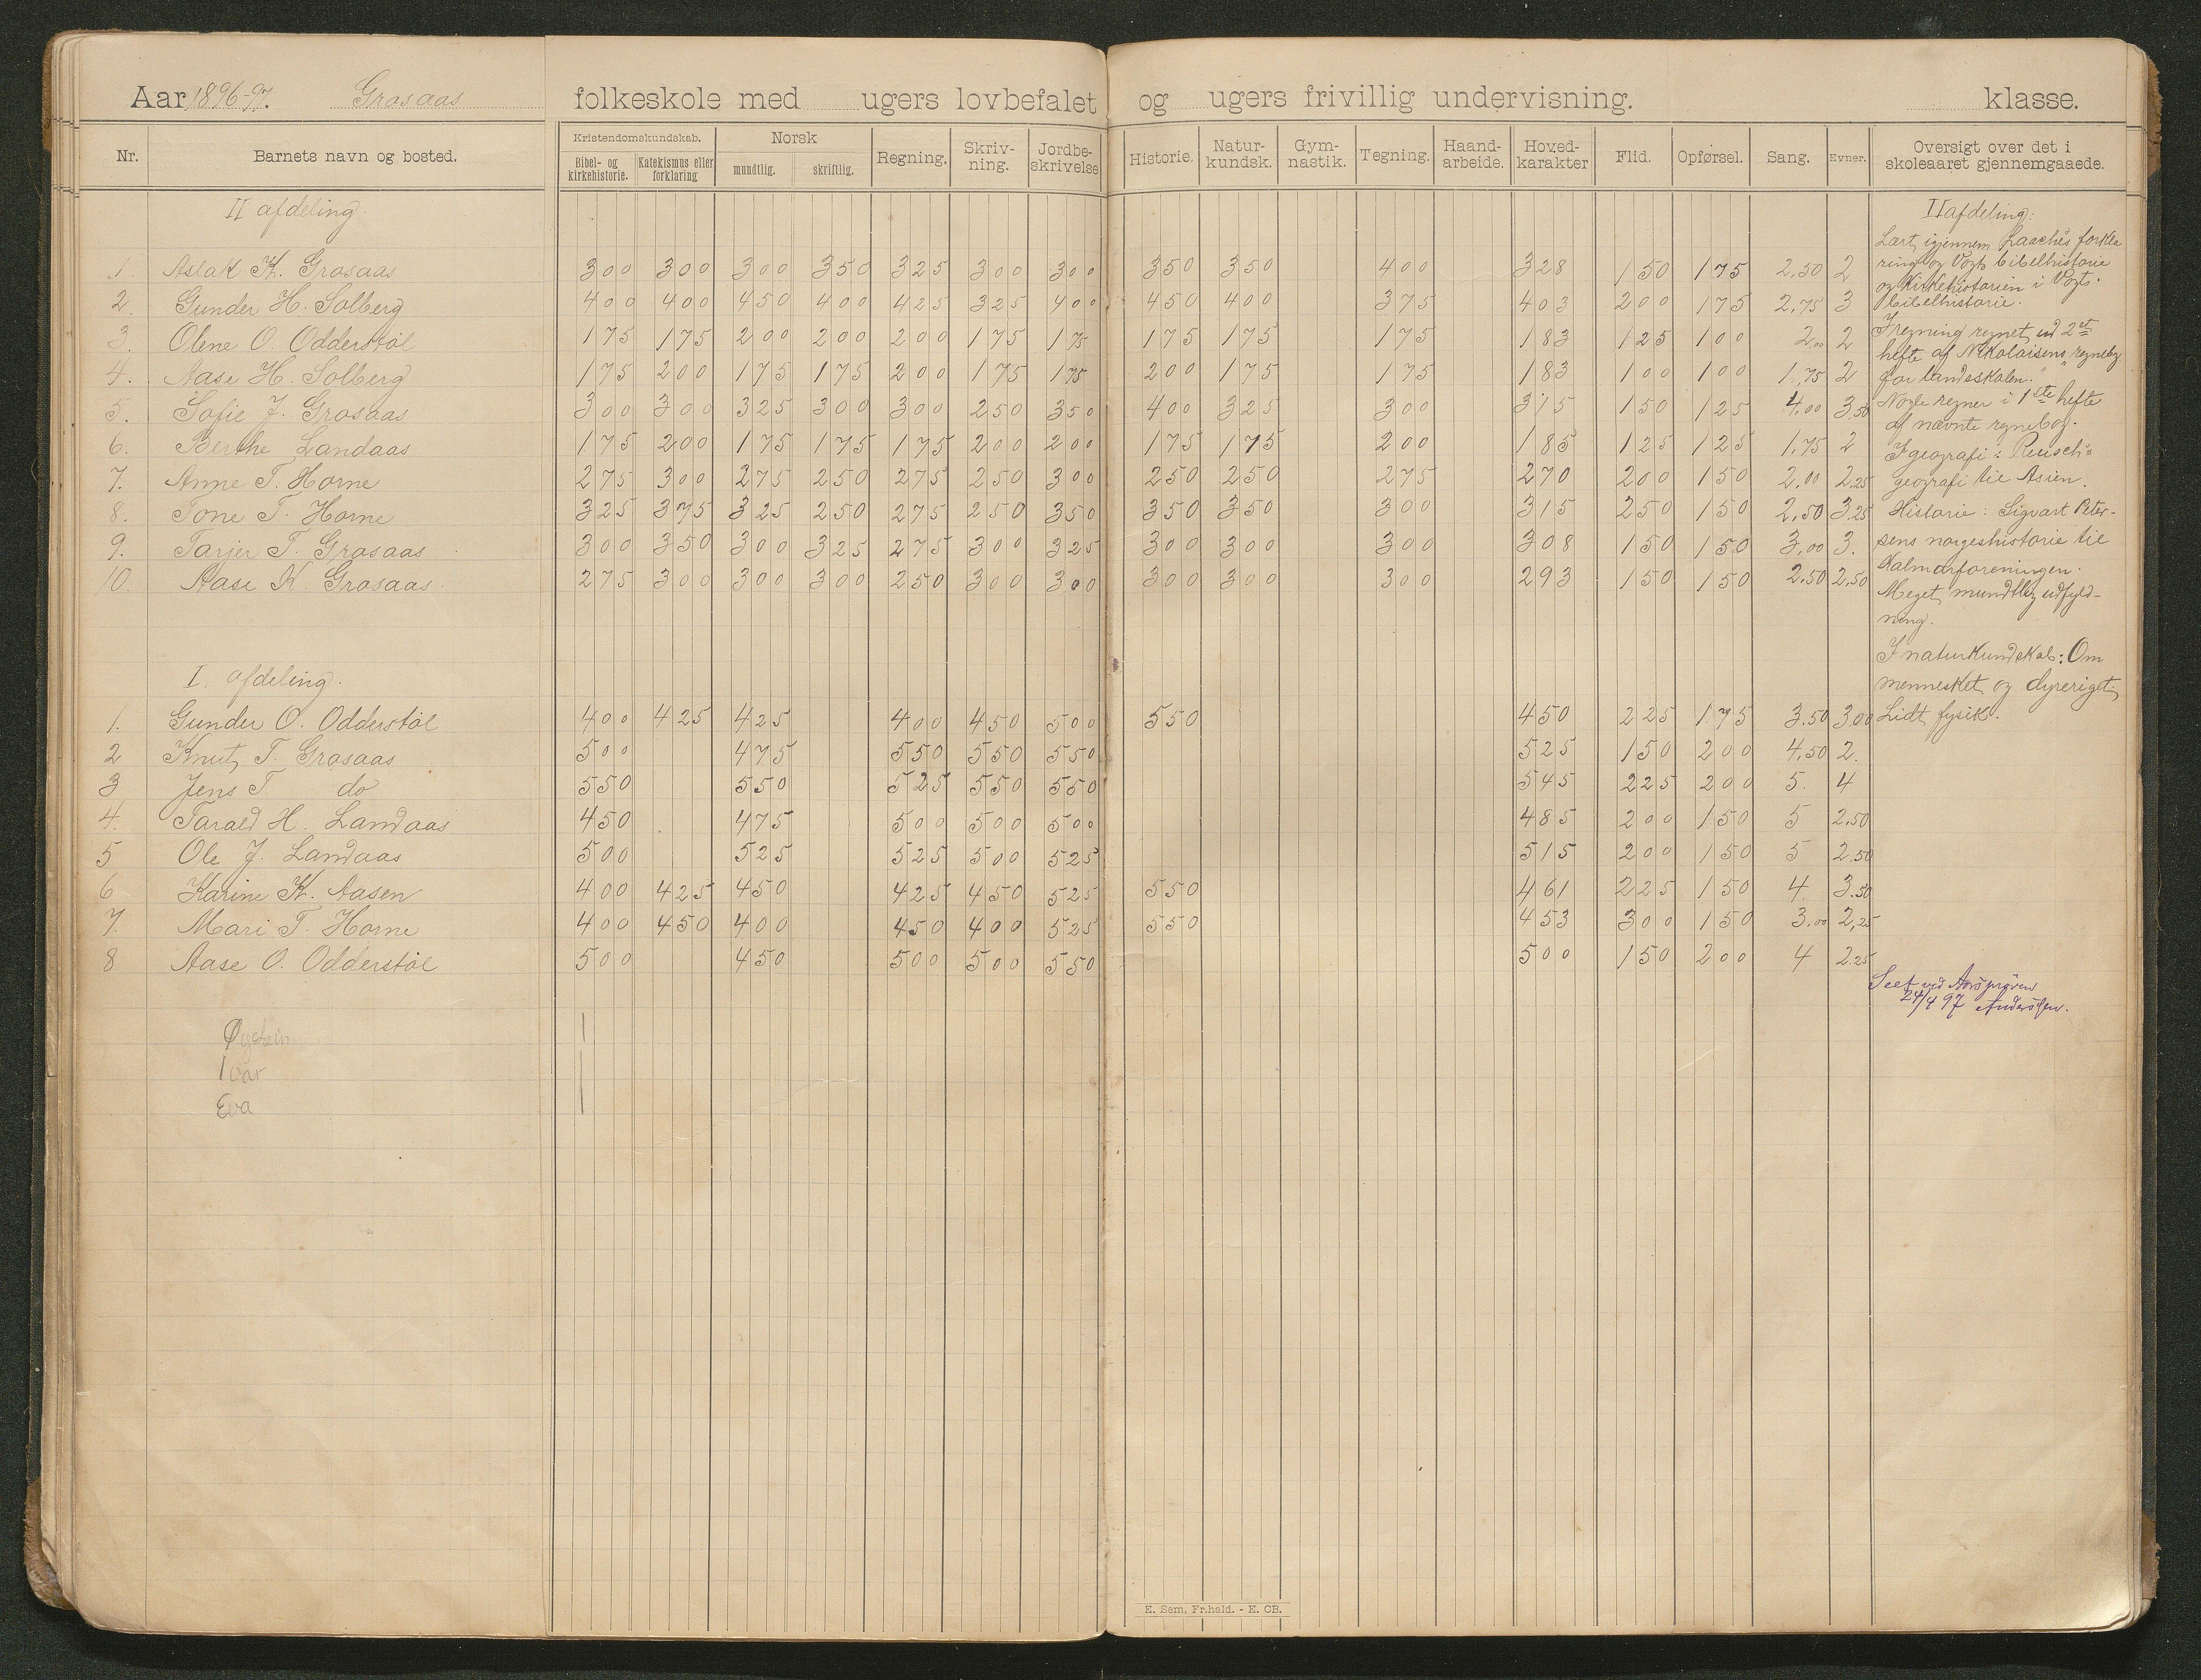 Aar 1896-97. Grosaas folkeskole med ugers lovbefalet og ugers frivillig undervisning. klasse.
Nr. Barnets navn og bosted. Kristendomskundskab. Bibel- og kirkehistorie. Katekismus eller forklaring Norsk mundtlig. skriftlig. Regning. Skriv-ning. Jordbe-skrivelse Historie. Natur-kundsk. Gym-nastik. Tegning. Haand-arbeide. Hoved-karakter Flid. Opførsel. Sang. Evner. Oversigt over det i skoleaaret gjennemgaaede.
II afdeling.
1. Aslak K. Grosaas 300 300 300 350 325 300 300 350 350 400 328 150 175 2,50 2
2. Gunder H. Solberg 400 400 450 400 425 325 400 450 400 375 403 200 175 2,75 3
3. Olene O. Odderstøl 175 175 200 200 200 175 175 175 175 175 183 125 100 2,00 2
4. Aase H. Solberg 175 200 175 175 200 175 175 200 175 175 183 100 100 1,75 2
5. Sofie J. Grosaas 300 300 325 300 300 250 350 400 325 300 315 150 125 4,00 3,50
6. Berthe Landaas 175 200 175 175 175 200 200 175 175 200 185 125 125 1,75 2
7. Anne T. Horne 275 300 275 250 275 250 300 250 250 275 270 200 150 2,00 2,25
8. Tone T. Horne 325 375 325 250 275 250 350 350 350 300 315 250 150 2,50 3,25
9. Tarjer T. Grosaas 300 350 300 325 275 300 325 300 300 300 308 150 150 3,00 3.
10. Aase K. Grosaas 275 300 300 300 250 300 300 300 300 300 293 150 150 2,50 2,50
I. afdeling.
1. Gunder O. Odderstøl 400 425 425 400 450 500 550 450 225 175 3.50 300
2 Knut T. Grosaas 500 475 550 550 550 525 150 200 4,50 2.
3 Jens T. do 550 550 525 550 550 545 225 200 5. 4
4. Tarald H. Landaas 450 475 500 500 500 485 200 150 5 2.50
5 Ole J. Landaas 500 525 525 500 525 515 200 150 5 2.50
6 Karine K. Aasen 400 425 450 425 450 525 550 461 225 150 4. 3.50
7. Mari T. Horne 400 450 400 450 400 525 550 453 300 150 3.00 2,25
8 Aase O. Odderstøl 500 450 500 500 550 500 150 200 4 2.25
Øystein
Ivar
Eva
II afdeling:
Lært igjennem Laaches forkla
ring og Vogts bibelhistorie
og Kirkehistorien i Vogts
bibelhistorie.
I regning regnet ud 2et
hefte af Nikolaisens regnebog
for landeskolen.
Nogle regner i 1ste hefte
af nævnte regnebog.
I geografi: Reusch's
geografi til Asien.
Historie: Sigvart Peter-
sens norgeshistorie til
Kalmarforeningen.
Meget mundtlig udfyld-
ning.
I naturkundskab: Om
mennesket og dyreriget,
Lidt fysik.
Seet ved Aarsprøven
24/4 97 Anderssen.
E. Sem, Fr.hald. - E. CB.